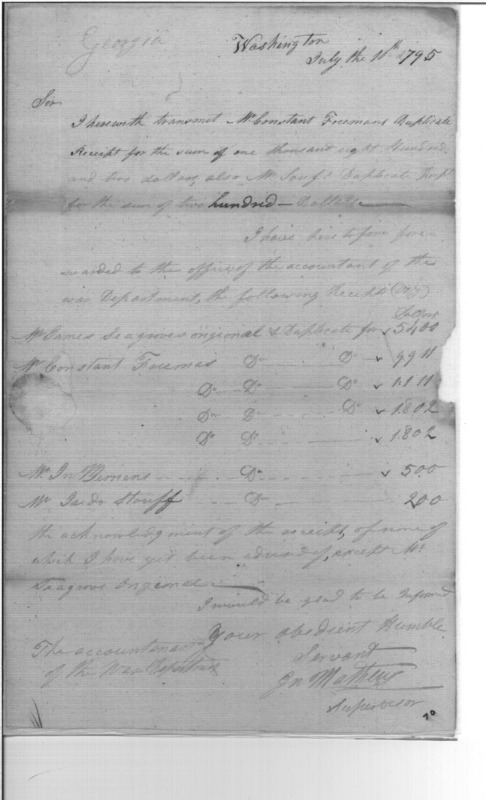 Georgia
Washington
July the 11th 1795
Sir
I herewith transmit Mr Constant Freemans Duplicate
Receipt for the sum of one thousand eight Hundred
and two dollars, also Mr Duplicate
for the sum of two hundred — Dollars
I have here to fore for-
warded to the office of the accountant of the
war Department, the following Receipts (Viz)
Dollars
Mr James Seagroves original & Duplicate for 5400
Mr Constant Freemans Do Do 9911
Do Do Do 1111
Do Do Do 1802
Do Do 1802
Mr Jn Do 500
Mr Stouff Do 200
the acknowledgment of the receipt, of none of
which I have yet been advised of, except Mr
Seagroves Original
I would be glad to be Informed
Your obedient Humble
Servant
Jn Mathews
Supervisor
The accountant
of the War Department
70